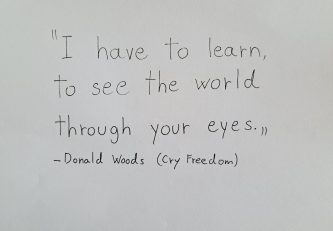 "I have to learn,
to see the world
through your eyes.„
- Donald Woods (Cry Freedom)